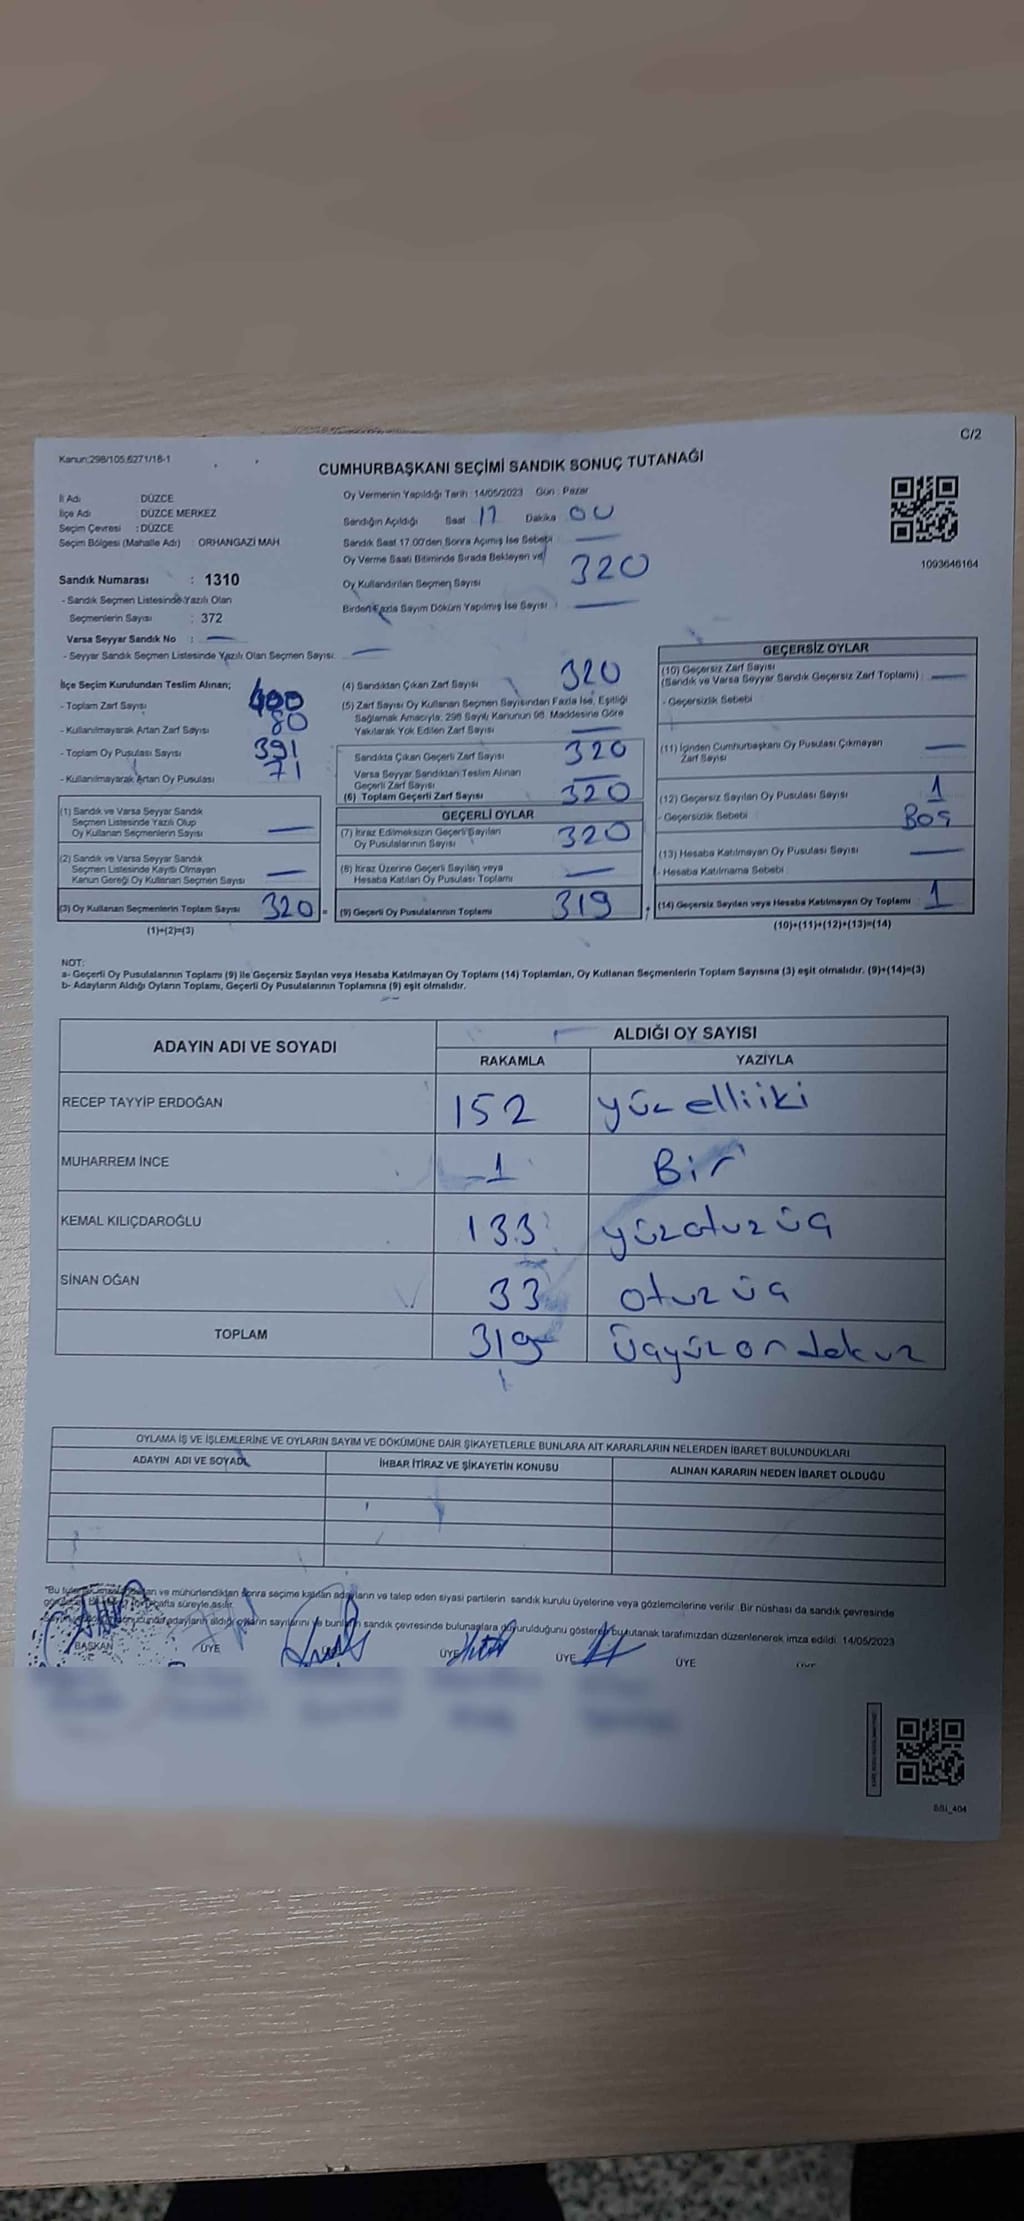 C/2
Kanun:298/105,6271/18-1
CUMHURBAŞKANI SEÇİMİ SANDIK SONUÇ TUTANAĞI
İl Adı : DÜZCE
İlçe Adı : DÜZCE MERKEZ
Seçim Çevresi : DÜZCE
Seçim Bölgesi (Mahalle Adı) : ORHANGAZİ MAH
Sandık Numarası : 1310
- Sandık Seçmen Listesinde Yazılı Olan
Seçmenlerin Sayısı : 372
Varsa Seyyar Sandık No : —
- Seyyar Sandık Seçmen Listesinde Yazılı Olan Seçmen Sayısı: —
Oy Vermenin Yapıldığı Tarih : 14/05/2023 Gün : Pazar
Sandığın Açıldığı Saat 17 Dakika 00
Sandık Saat 17.00'den Sonra Açılmış İse Sebebi : —
Oy Verme Saati Bitiminde Sırada Bekleyen ve
Oy Kullandırılan Seçmen Sayısı 320
Birden Fazla Sayım Döküm Yapılmış İse Sayısı : —
1093646164
İlçe Seçim Kurulundan Teslim Alınan;
- Toplam Zarf Sayısı 400
- Kullanılmayarak Artan Zarf Sayısı 80
- Toplam Oy Pusulası Sayısı 391
- Kullanılmayarak Artan Oy Pusulası 71
(1) Sandık ve Varsa Seyyar Sandık
Seçmen Listesinde Yazılı Olup
Oy Kullanan Seçmenlerin Sayısı —
(2) Sandık ve Varsa Seyyar Sandık
Seçmen Listesinde Kayıtlı Olmayan
Kanun Gereği Oy Kullanan Seçmen Sayısı —
(3) Oy Kullanan Seçmenlerin Toplam Sayısı 320 =
(1)+(2)=(3)
(4) Sandıktan Çıkan Zarf Sayısı 320
(5) Zarf Sayısı Oy Kullanan Seçmen Sayısından Fazla İse, Eşitliği
Sağlamak Amacıyla, 298 Sayılı Kanunun 98. Maddesine Göre
Yakılarak Yok Edilen Zarf Sayısı —
Sandıkta Çıkan Geçerli Zarf Sayısı 320
Varsa Seyyar Sandıktan Teslim Alınan
Geçerli Zarf Sayısı —
(6) Toplam Geçerli Zarf Sayısı 320
GEÇERLİ OYLAR
(7) İtiraz Edilmeksizin Geçerli Sayılan
Oy Pusulalarının Sayısı 320
(8) İtiraz Üzerine Geçerli Sayılan veya
Hesaba Katılan Oy Pusulası Toplamı —
(9) Geçerli Oy Pusulalarının Toplamı 319 +
GEÇERSİZ OYLAR
(10) Geçersiz Zarf Sayısı
(Sandık ve Varsa Seyyar Sandık Geçersiz Zarf Toplamı) —
- Geçersizlik Sebebi
(11) İçinden Cumhurbaşkanı Oy Pusulası Çıkmayan
Zarf Sayısı —
(12) Geçersiz Sayılan Oy Pusulası Sayısı 1
- Geçersizlik Sebebi Boş
(13) Hesaba Katılmayan Oy Pusulası Sayısı —
- Hesaba Katılmama Sebebi
(14) Geçersiz Sayılan veya Hesaba Katılmayan Oy Toplamı : 1
(10)+(11)+(12)+(13)=(14)
NOT:
a- Geçerli Oy Pusulalarının Toplamı (9) ile Geçersiz Sayılan veya Hesaba Katılmayan Oy Toplamı (14) Toplamları, Oy Kullanan Seçmenlerin Toplam Sayısına (3) eşit olmalıdır. (9)+(14)=(3)
b- Adayların Aldığı Oyların Toplamı, Geçerli Oy Pusulalarının Toplamına (9) eşit olmalıdır.
ADAYIN ADI VE SOYADI ALDIĞI OY SAYISI
RAKAMLA YAZIYLA
RECEP TAYYİP ERDOĞAN 152 yüzelliiki
MUHARREM İNCE 1 Bir
KEMAL KILIÇDAROĞLU 133 yüzotuzüç
SİNAN OĞAN 33 otuzüç
TOPLAM 319 Üçyüzondokuz
OYLAMA İŞ VE İŞLEMLERİNE VE OYLARIN SAYIM VE DÖKÜMÜNE DAİR ŞİKAYETLERLE BUNLARA AİT KARARLARIN NELERDEN İBARET BULUNDUKLARI
ADAYIN ADI VE SOYADI İHBAR İTİRAZ VE ŞİKAYETİN KONUSU ALINAN KARARIN NEDEN İBARET OLDUĞU
ve mühürlendikten sonra seçime katılan adayların ve talep eden siyasi partilerin sandık kurulu üyelerine veya gözlemcilerine verilir. Bir nüshası da sandık çevresinde
hafta süreyle asılır.
adayların aldığı oyların sayılarını ve bunların sandık çevresinde bulunanlara duyurulduğunu gösteren bu tutanak tarafımızdan düzenlenerek imza edildi. 14/05/2023
BAŞKAN ÜYE ÜYE ÜYE ÜYE